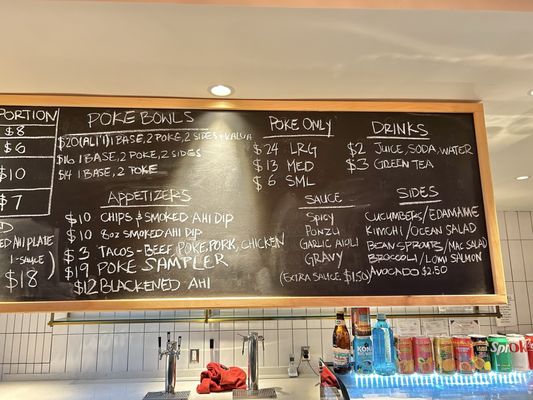 PORTION
$8
$6
$10
$7
ED AHI PLATE
1-SAUCE)
$18
POKE BOWLS
$20 (ALI'I) 1 BASE, 2 POKE, 2 SIDES + KALUA
$16 1 BASE, 2 POKE, 2 SIDES
$14 1 BASE, 2 POKE
APPETIZERS
$10 CHIPS & SMOKED AHI DIP
$10 8oz SMOKED AHI DIP
$3 TACOS - BEEF, POKE, PORK, CHICKEN
$19 POKE SAMPLER
$12 BLACKENED AHI
POKE ONLY
$24 LRG
$13 MED
$6 SML
SAUCE
SPICY
PONZU
GARLIC AIOLI
GRAVY
(EXTRA SAUCE $1.50)
DRINKS
$2 JUICE, SODA, WATER
$3 GREEN TEA
SIDES
CUCUMBERS/EDAMAME
KIMCHI/OCEAN SALAD
BEAN SPROUTS/MAC SALAD
BROCCOLI/LOMI SALMON
AVOCADO $2.50
KONA